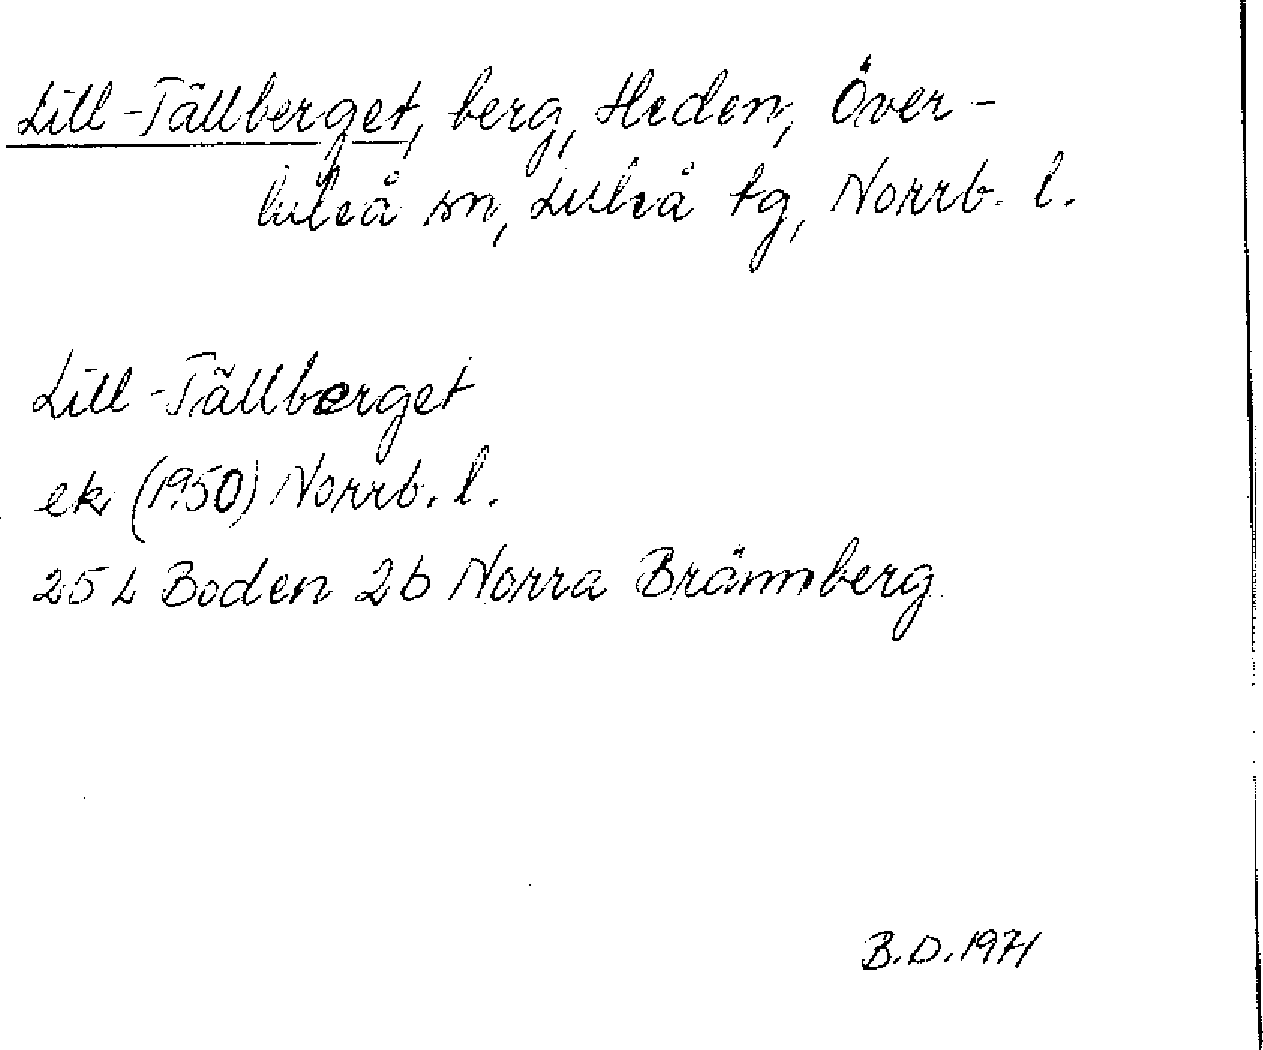 Lill-Tällberget, berg, Heden, Över-
luleå sn, Luleå tg, Norrb. l.
Lill-Tällberget
ek (1950) Norrb. l.
25 L Boden 2b Norra Brännberg.
B.D. 1971